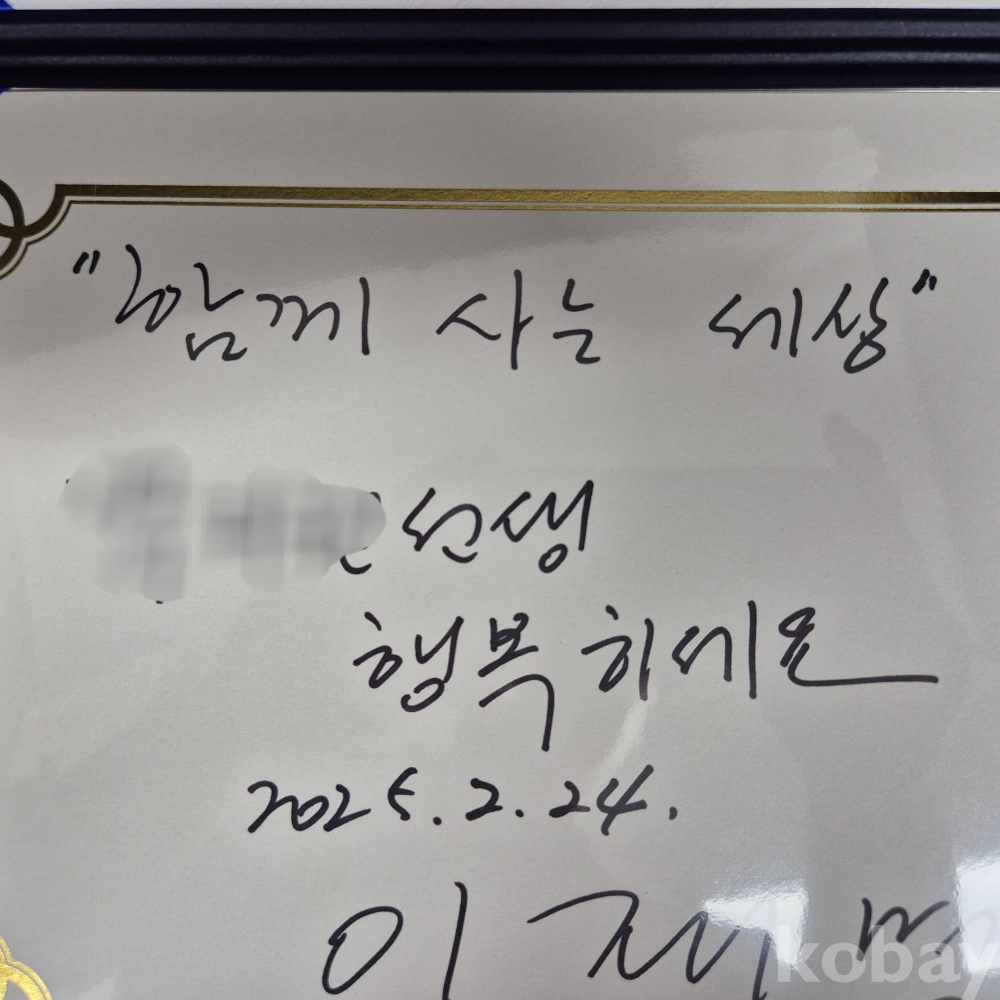 "함께 사는 세상"
선생
행복하세요
2025.2.24.
이재
kobay